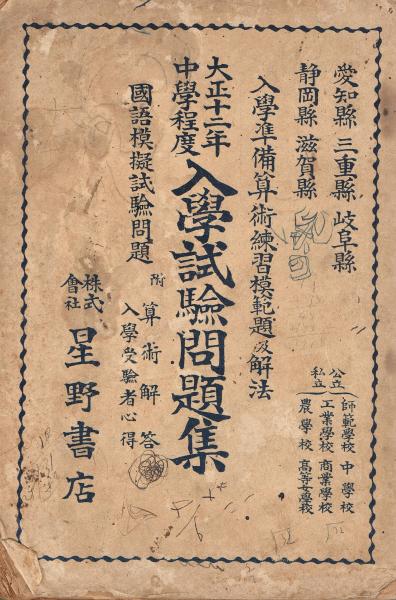 愛知縣 三重縣 岐阜縣
靜岡縣 滋賀縣
公立
私立
師範學校 中學校
工業學校 商業學校
農學校 高等女學校
入學準備算術練習模範題及解法
大正十二年
中學程度
入學試驗問題集
國語模擬試驗問題
附
算術解答
入學受驗者心得
株式
會社
星野書店